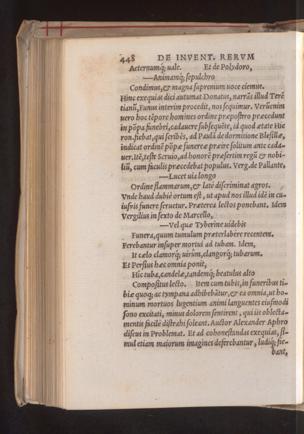 448 DE INVENT. RERVM
Aeternumq́; uale. Et de Polydoro,
—Animamq́; sepulchro
Condimus, & magna supremum uoce ciemus.
Hinc exequias dici autumat Donatus, narrās illud Terē
tianū, Funus interim procedit, nos sequimur. Verùenim
uero hoc tēpore homines ordine præpostro præcedunt
in pōpa funebri, cadauere subsequēte, id quod ætate Hie
ron. fiebat, qui scribēs, ad Paulā de dormitione Blesillæ,
indicat ordinē pōpæ funereæ præire solitum ante cada-
uer. Itē, teste Seruio, ad honorē præsertim regū & nobi-
liū, cum faculis præcedebat populus. Verg. de Pallante,
—Lucet uia longo
Ordine flammarum, & latè discriminat agros.
Vnde haud dubiè ortum est, ut apud nos illud idē in cu-
iusuis funere seruetur. Præterea lectos ponebant. Idem
Vergilius in sexto de Marcello,
—Vel quæ Tyberine uidebis
Funera, quum tumulum præterlabere recentem.
Ferebantur insuper mortui ad tubam. Idem,
It cælo clamorq́; uirûm, clangorq́; tubarum.
Et Persius hæc omnia ponit,
Hic tuba, candelæ, tandemq́; beatulus alto
Compositus lecto. Item cum tubis, in funeribus ti-
biæ quoq; ac tympana adhibebātur, & ea omnia, ut ho-
minum mortuos lugentium animi languentes eiusmodi
sono excitati, minus dolorem sentirent, qui iis oblecta-
mentis facilè distrahi soleant. Auctor Alexander Aphro
diseus in Problemat. Et ad cohonestandas exequias, si-
mul etiam maiorum imagines deferebantur, ludiq́; fie-
bant,